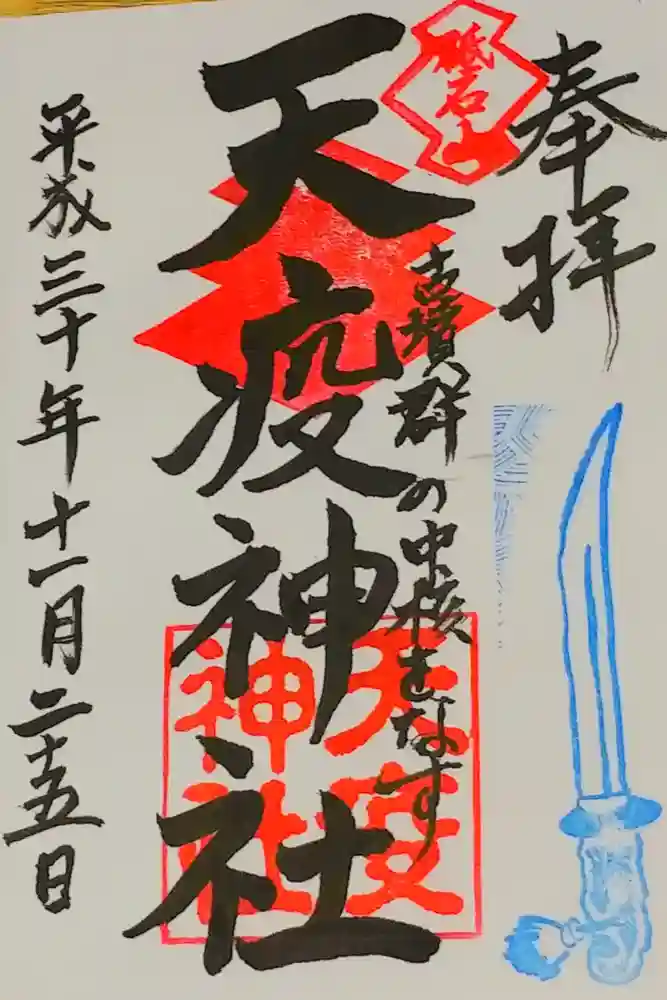 奉拝
砥石山
古墳群の中核をなす
天疫神社
天疫
神社
平成三十年十一月二十五日